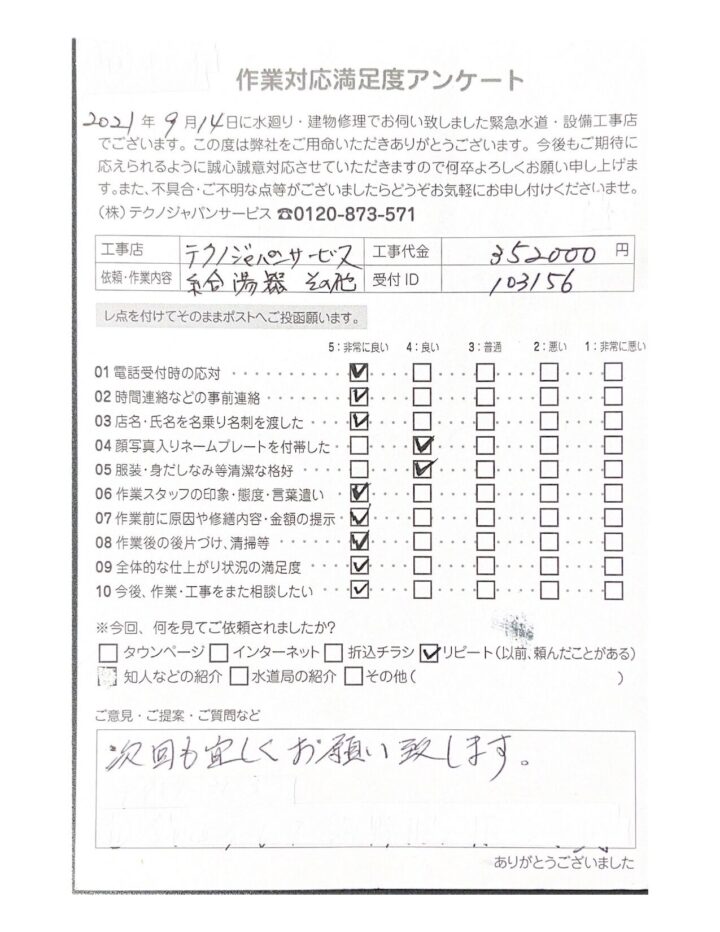 作業対応満足度アンケート
2021年9月14日に水廻り・建物修理でお伺い致しました緊急水道・設備工事店
でございます。この度は弊社をご用命いただきありがとうございます。今後もご期待に
応えられるように誠心誠意対応させていただきますので何卒よろしくお願い申し上げま
す。また、不具合・ご不明な点等がございましたらどうぞお気軽にお申し付けくださいませ。
(株)テクノジャパンサービス ☎0120-873-571
工事店 テクノジャパンサービス 工事代金 352000 円
依頼・作業内容 給湯器 その他 受付ID 103156
レ点を付けてそのままポストへご投函願います。
5:非常に良い 4:良い 3:普通 2:悪い 1:非常に悪い
01 電話受付時の応対 ☑ □ □ □ □
02 時間連絡などの事前連絡 ☑ □ □ □ □
03 店名・氏名を名乗り名刺を渡した ☑ □ □ □ □
04 顔写真入りネームプレートを付帯した □ ☑ □ □ □
05 服装・身だしなみ等清潔な格好 □ ☑ □ □ □
06 作業スタッフの印象・態度・言葉遣い ☑ □ □ □ □
07 作業前に原因や修繕内容・金額の提示 ☑ □ □ □ □
08 作業後の後片づけ、清掃等 ☑ □ □ □ □
09 全体的な仕上がり状況の満足度 ☑ □ □ □ □
10 今後、作業・工事をまた相談したい ☑ □ □ □ □
※今回、何を見てご依頼されましたか?
□タウンページ □インターネット □折込チラシ ☑リピート(以前、頼んだことがある)
□知人などの紹介 □水道局の紹介 □その他( )
ご意見・ご提案・ご質問など
次回も宜しくお願い致します。
ありがとうございました